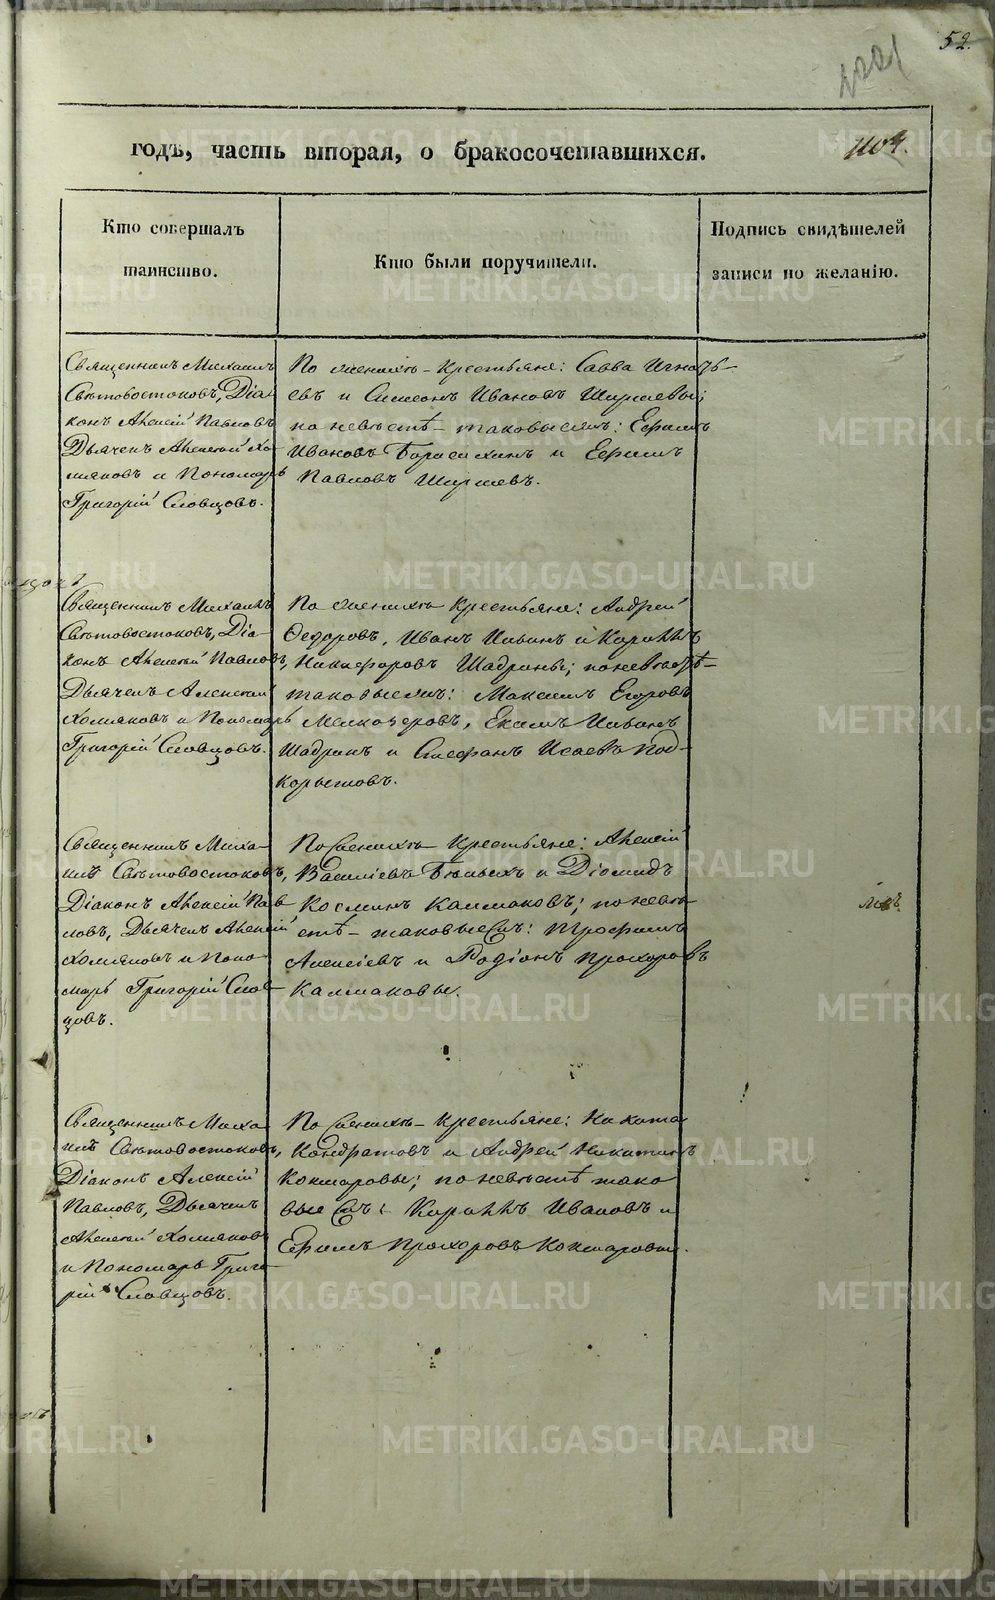 52.
годъ, часть вторая, о бракосочетавшихся.
Кто совершалъ
таинство.
Кто были поручители.
Подпись свидѣтелей
записи по желанію.
Священникъ Михаилъ
Свѣтовостоковъ, Діа-
конъ Алексій Павловъ
Дьячекъ Алексій Хо-
мяковъ и Пономарь
Григорій Словцовъ.
По женихѣ - крестьяне: Савва Игнатье-
евъ и Симеонъ Ивановъ Ширяевы;
по невѣстѣ - таковыежъ: Ефимъ
Ивановъ и Ефимъ
Павловъ Ширяевъ.
Священникъ Михаилъ
Свѣтовостоковъ, Діа-
конъ Алексій Павловъ,
Дьячекъ Алексій
Хомяковъ и Пономарь
Григорій Словцовъ.
По женихѣ крестьяне: Андрей
Ѳедоровъ, Иванъ Ильинъ и Кириллъ
Никифоровъ Шадрины; по невѣстѣ -
таковыежъ: Максимъ Егоровъ
Мелкозеровъ, Екимъ Ильинъ
Шадринъ и Стефанъ Исаевъ Под-
корытовъ.
Священникъ Миха-
илъ Свѣтовостоковъ,
Діаконъ Алексій Пав-
ловъ, Дьячекъ Алексій
Хомяковъ и Поно-
марь Григорій Слов-
цовъ.
По женихѣ крестьяне: Алексій
Васильевъ Бѣлыхъ и Діомидъ
Косминъ Калмаковъ; по невѣ-
стѣ - таковыежъ: Трофимъ
Алексіевъ и Родіонъ Прохоровъ
Калмаковы.
Священникъ Миха-
илъ Свѣтовостоковъ,
Діаконъ Алексій
Павловъ, Дьячекъ
Алексій Хомяковъ
и Пономарь Григо-
рій Словцовъ.
По женихѣ - крестьяне: Никита
Кондратовъ и Андрей Никитинъ
Кокшаровы; по невѣстѣ тако-
выежъ: Кириллъ Ивановъ и
Ефимъ Прохоровъ Кокшаровы.
METRIKI.GASO-URAL.RU